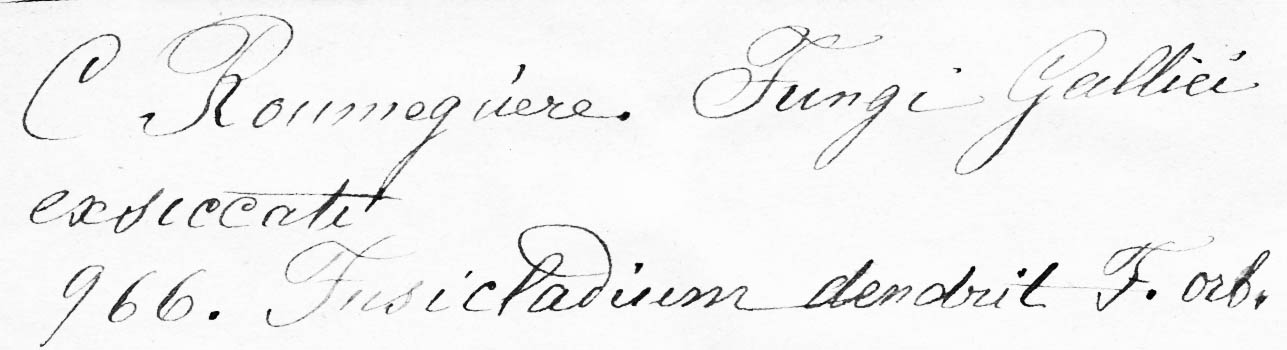 C Roumeguere. Fungi Gallici
exsiccati
966. Fusicladium dendrit F. orb.